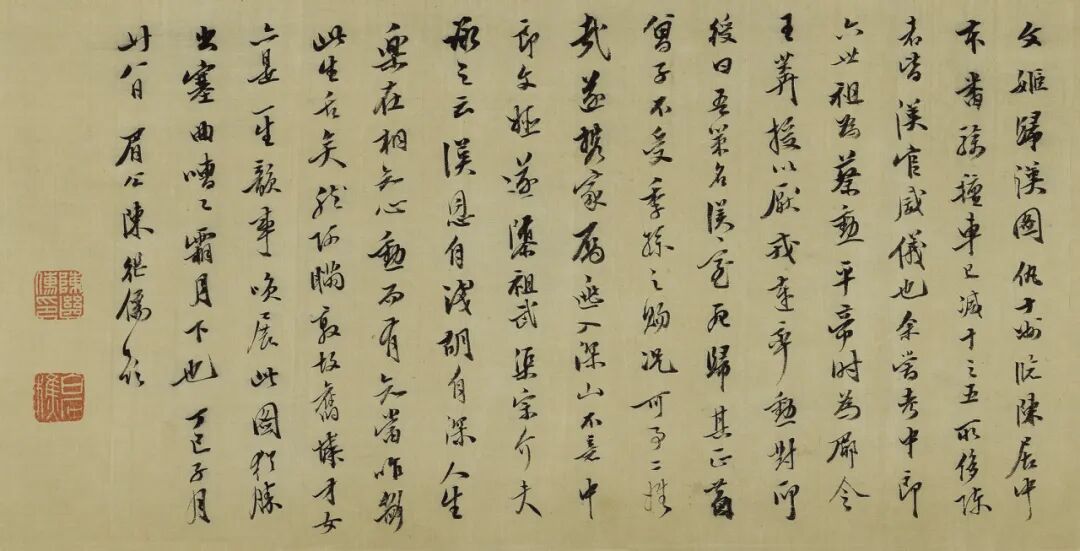 文姬歸漢圖仇十洲臨陳居中
本番騎氊車已減十之五所侈陳
者皆漢官威儀也余嘗考中郎
六世祖為蔡勳平帝時為郿令
王莽授以厭戎連率勳對印
綬曰吾策名漢室死歸其正昔
曾子不受季孫之賜況可事二姓
哉遂携家屬逃入深山不意中
郎文姬遂隳祖武介夫
歌之云漢恩自淺胡自深人生
樂在相知心勳而有知當咋
此生舌矣然阿瞞敦故舊憐才女
亦是一生韻事展此圖猶勝
出塞曲嘈嘈霜月下也 丁巳子月
廿八日 眉公陳繼儒題
陳繼儒印
白石樵